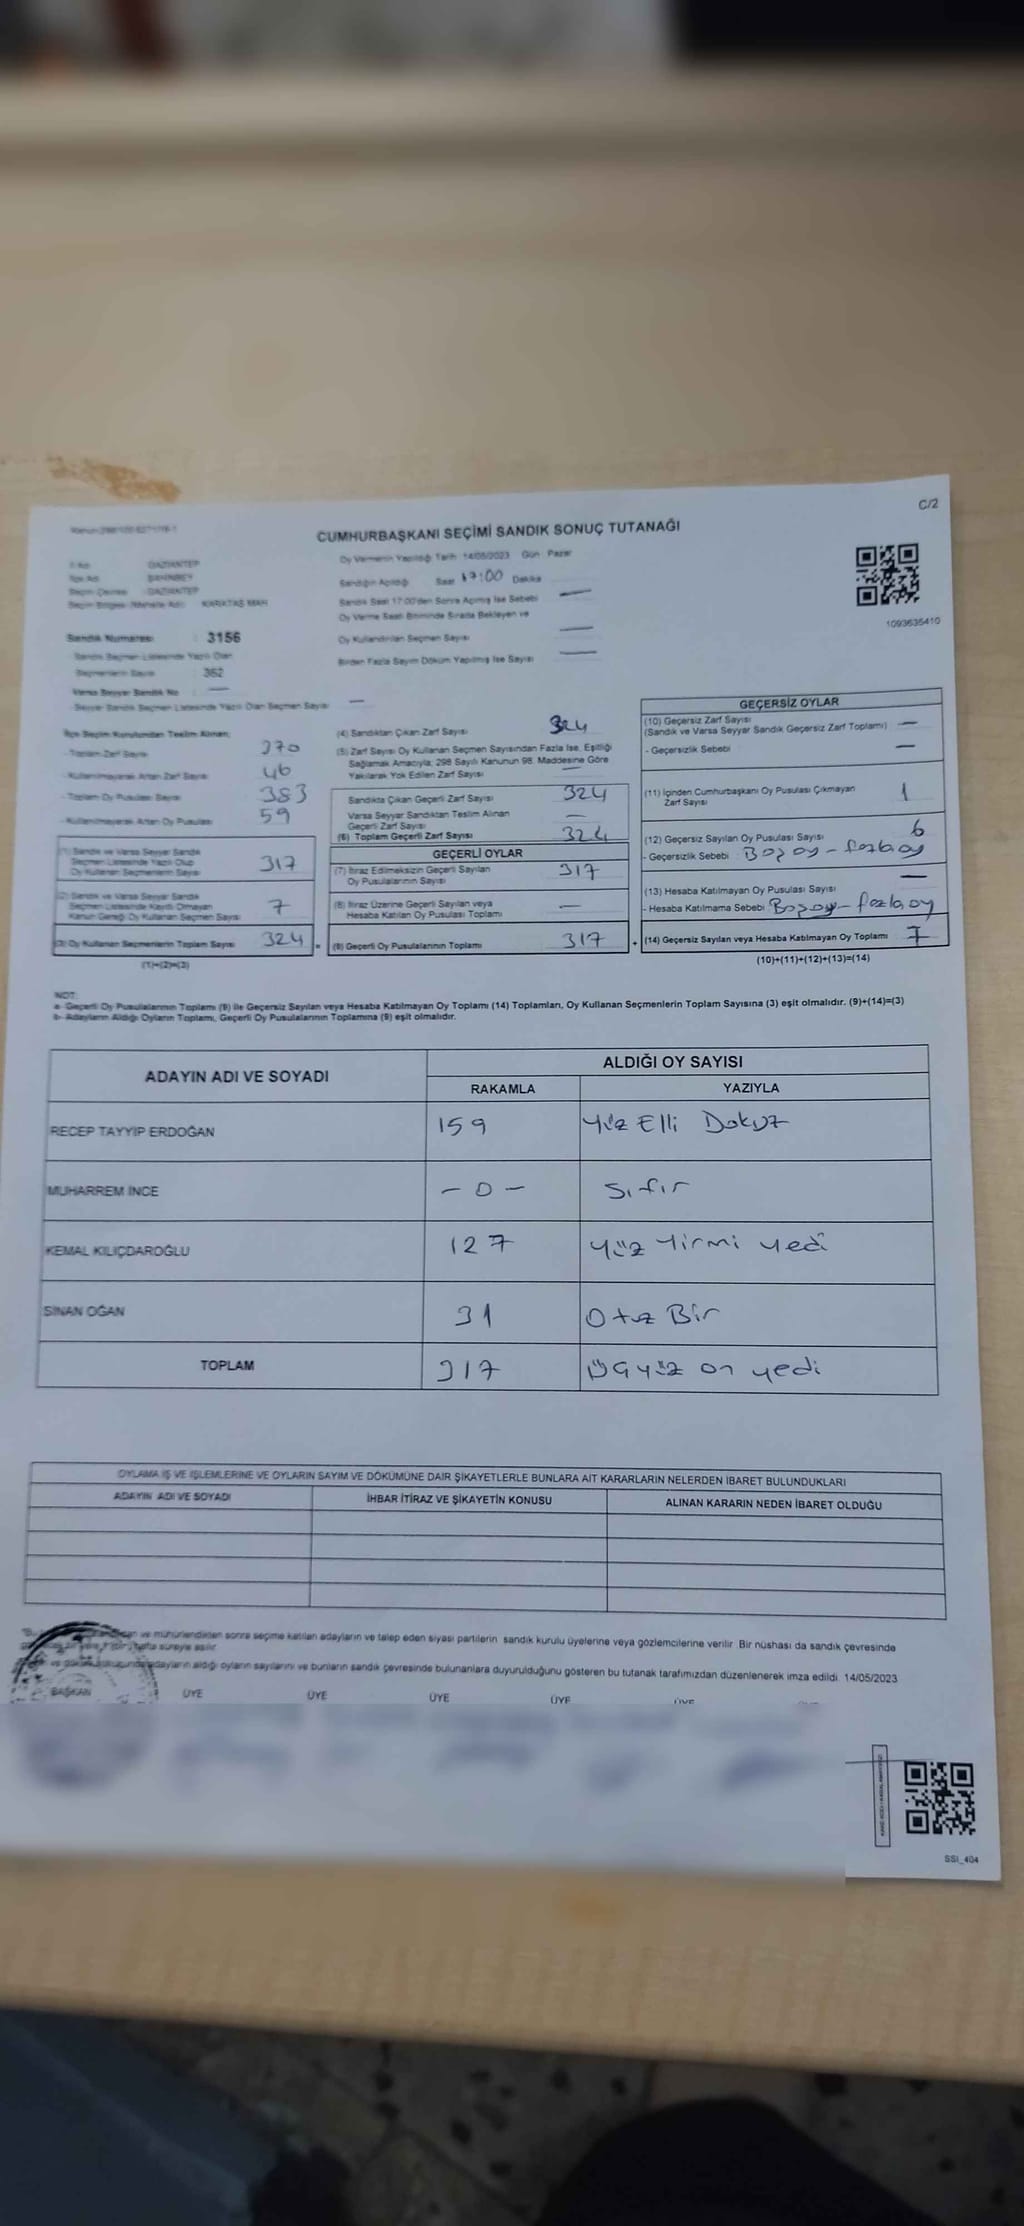 C/2
CUMHURBAŞKANI SEÇİMİ SANDIK SONUÇ TUTANAĞI
İl Adı GAZİANTEP
İlçe Adı ŞAHİNBEY
Seçim Çevresi GAZİANTEP
Seçim Bölgesi (Mahalle Adı) KARATAŞ MAH
Sandık Numarası : 3156
Sandık Seçmen Listesinde Yazılı Olan
Seçmenlerin Sayısı 362
Varsa Seyyar Sandık No : —
- Seyyar Sandık Seçmen Listesinde Yazılı Olan Seçmen Sayısı —
Oy Vermenin Yapıldığı Tarih 14/05/2023 Gün Pazar
Sandığın Açıldığı Saat 17:00 Dakika
Sandık Saat 17:00'den Sonra Açılmış İse Sebebi —
Oy Verme Saati Bitiminde Sırada Bekleyen ve
Oy Kullandırılan Seçmen Sayısı —
Birden Fazla Sayım Döküm Yapılmış İse Sayısı —
1093635410
İlçe Seçim Kurulundan Teslim Alınan;
- Toplam Zarf Sayısı 370
- Kullanılmayarak Artan Zarf Sayısı 46
- Toplam Oy Pusulası Sayısı 383
- Kullanılmayarak Artan Oy Pusulası 59
(1) Sandık ve Varsa Seyyar Sandık
Seçmen Listesinde Yazılı Olup
Oy Kullanan Seçmenlerin Sayısı 317
(2) Sandık ve Varsa Seyyar Sandık
Seçmen Listesinde Kayıtlı Olmayan
Kanun Gereği Oy Kullanan Seçmen Sayısı 7
(3) Oy Kullanan Seçmenlerin Toplam Sayısı 324 =
(1)+(2)=(3)
(4) Sandıktan Çıkan Zarf Sayısı 324
(5) Zarf Sayısı Oy Kullanan Seçmen Sayısından Fazla İse, Eşitliği
Sağlamak Amacıyla; 298 Sayılı Kanunun 98. Maddesine Göre
Yakılarak Yok Edilen Zarf Sayısı —
Sandıkta Çıkan Geçerli Zarf Sayısı 324
Varsa Seyyar Sandıktan Teslim Alınan
Geçerli Zarf Sayısı —
(6) Toplam Geçerli Zarf Sayısı 324
GEÇERLİ OYLAR
(7) İtiraz Edilmeksizin Geçerli Sayılan
Oy Pusulalarının Sayısı 317
(8) İtiraz Üzerine Geçerli Sayılan veya
Hesaba Katılan Oy Pusulası Toplamı —
(9) Geçerli Oy Pusulalarının Toplamı 317 +
GEÇERSİZ OYLAR
(10) Geçersiz Zarf Sayısı —
(Sandık ve Varsa Seyyar Sandık Geçersiz Zarf Toplamı)
- Geçersizlik Sebebi —
(11) İçinden Cumhurbaşkanı Oy Pusulası Çıkmayan
Zarf Sayısı 1
(12) Geçersiz Sayılan Oy Pusulası Sayısı 6
- Geçersizlik Sebebi : Boş oy - fazla oy
(13) Hesaba Katılmayan Oy Pusulası Sayısı —
- Hesaba Katılmama Sebebi Boş oy - fazla oy
(14) Geçersiz Sayılan veya Hesaba Katılmayan Oy Toplamı 7
(10)+(11)+(12)+(13)=(14)
NOT:
a- Geçerli Oy Pusulalarının Toplamı (9) ile Geçersiz Sayılan veya Hesaba Katılmayan Oy Toplamı (14) Toplamları, Oy Kullanan Seçmenlerin Toplam Sayısına (3) eşit olmalıdır. (9)+(14)=(3)
b- Adayların Aldığı Oyların Toplamı, Geçerli Oy Pusulalarının Toplamına (9) eşit olmalıdır.
ADAYIN ADI VE SOYADI ALDIĞI OY SAYISI
RAKAMLA YAZIYLA
RECEP TAYYİP ERDOĞAN 159 Yüz Elli Dokuz
MUHARREM İNCE - 0 - Sıfır
KEMAL KILIÇDAROĞLU 127 Yüz Yirmi yedi
SİNAN OĞAN 31 Otuz Bir
TOPLAM 317 Üçyüz on yedi
OYLAMA İŞ VE İŞLEMLERİNE VE OYLARIN SAYIM VE DÖKÜMÜNE DAİR ŞİKAYETLERLE BUNLARA AİT KARARLARIN NELERDEN İBARET BULUNDUKLARI
ADAYIN ADI VE SOYADI İHBAR İTİRAZ VE ŞİKAYETİN KONUSU ALINAN KARARIN NEDEN İBARET OLDUĞU
ve mühürlendikten sonra seçime katılan adayların ve talep eden siyasi partilerin sandık kurulu üyelerine veya gözlemcilerine verilir. Bir nüshası da sandık çevresinde
hafta süreyle asılır.
adayların aldığı oyların sayılarını ve bunların sandık çevresinde bulunanlara duyurulduğunu gösteren bu tutanak tarafımızdan düzenlenerek imza edildi. 14/05/2023
BAŞKAN ÜYE ÜYE ÜYE ÜYE ÜYE
SSI_404